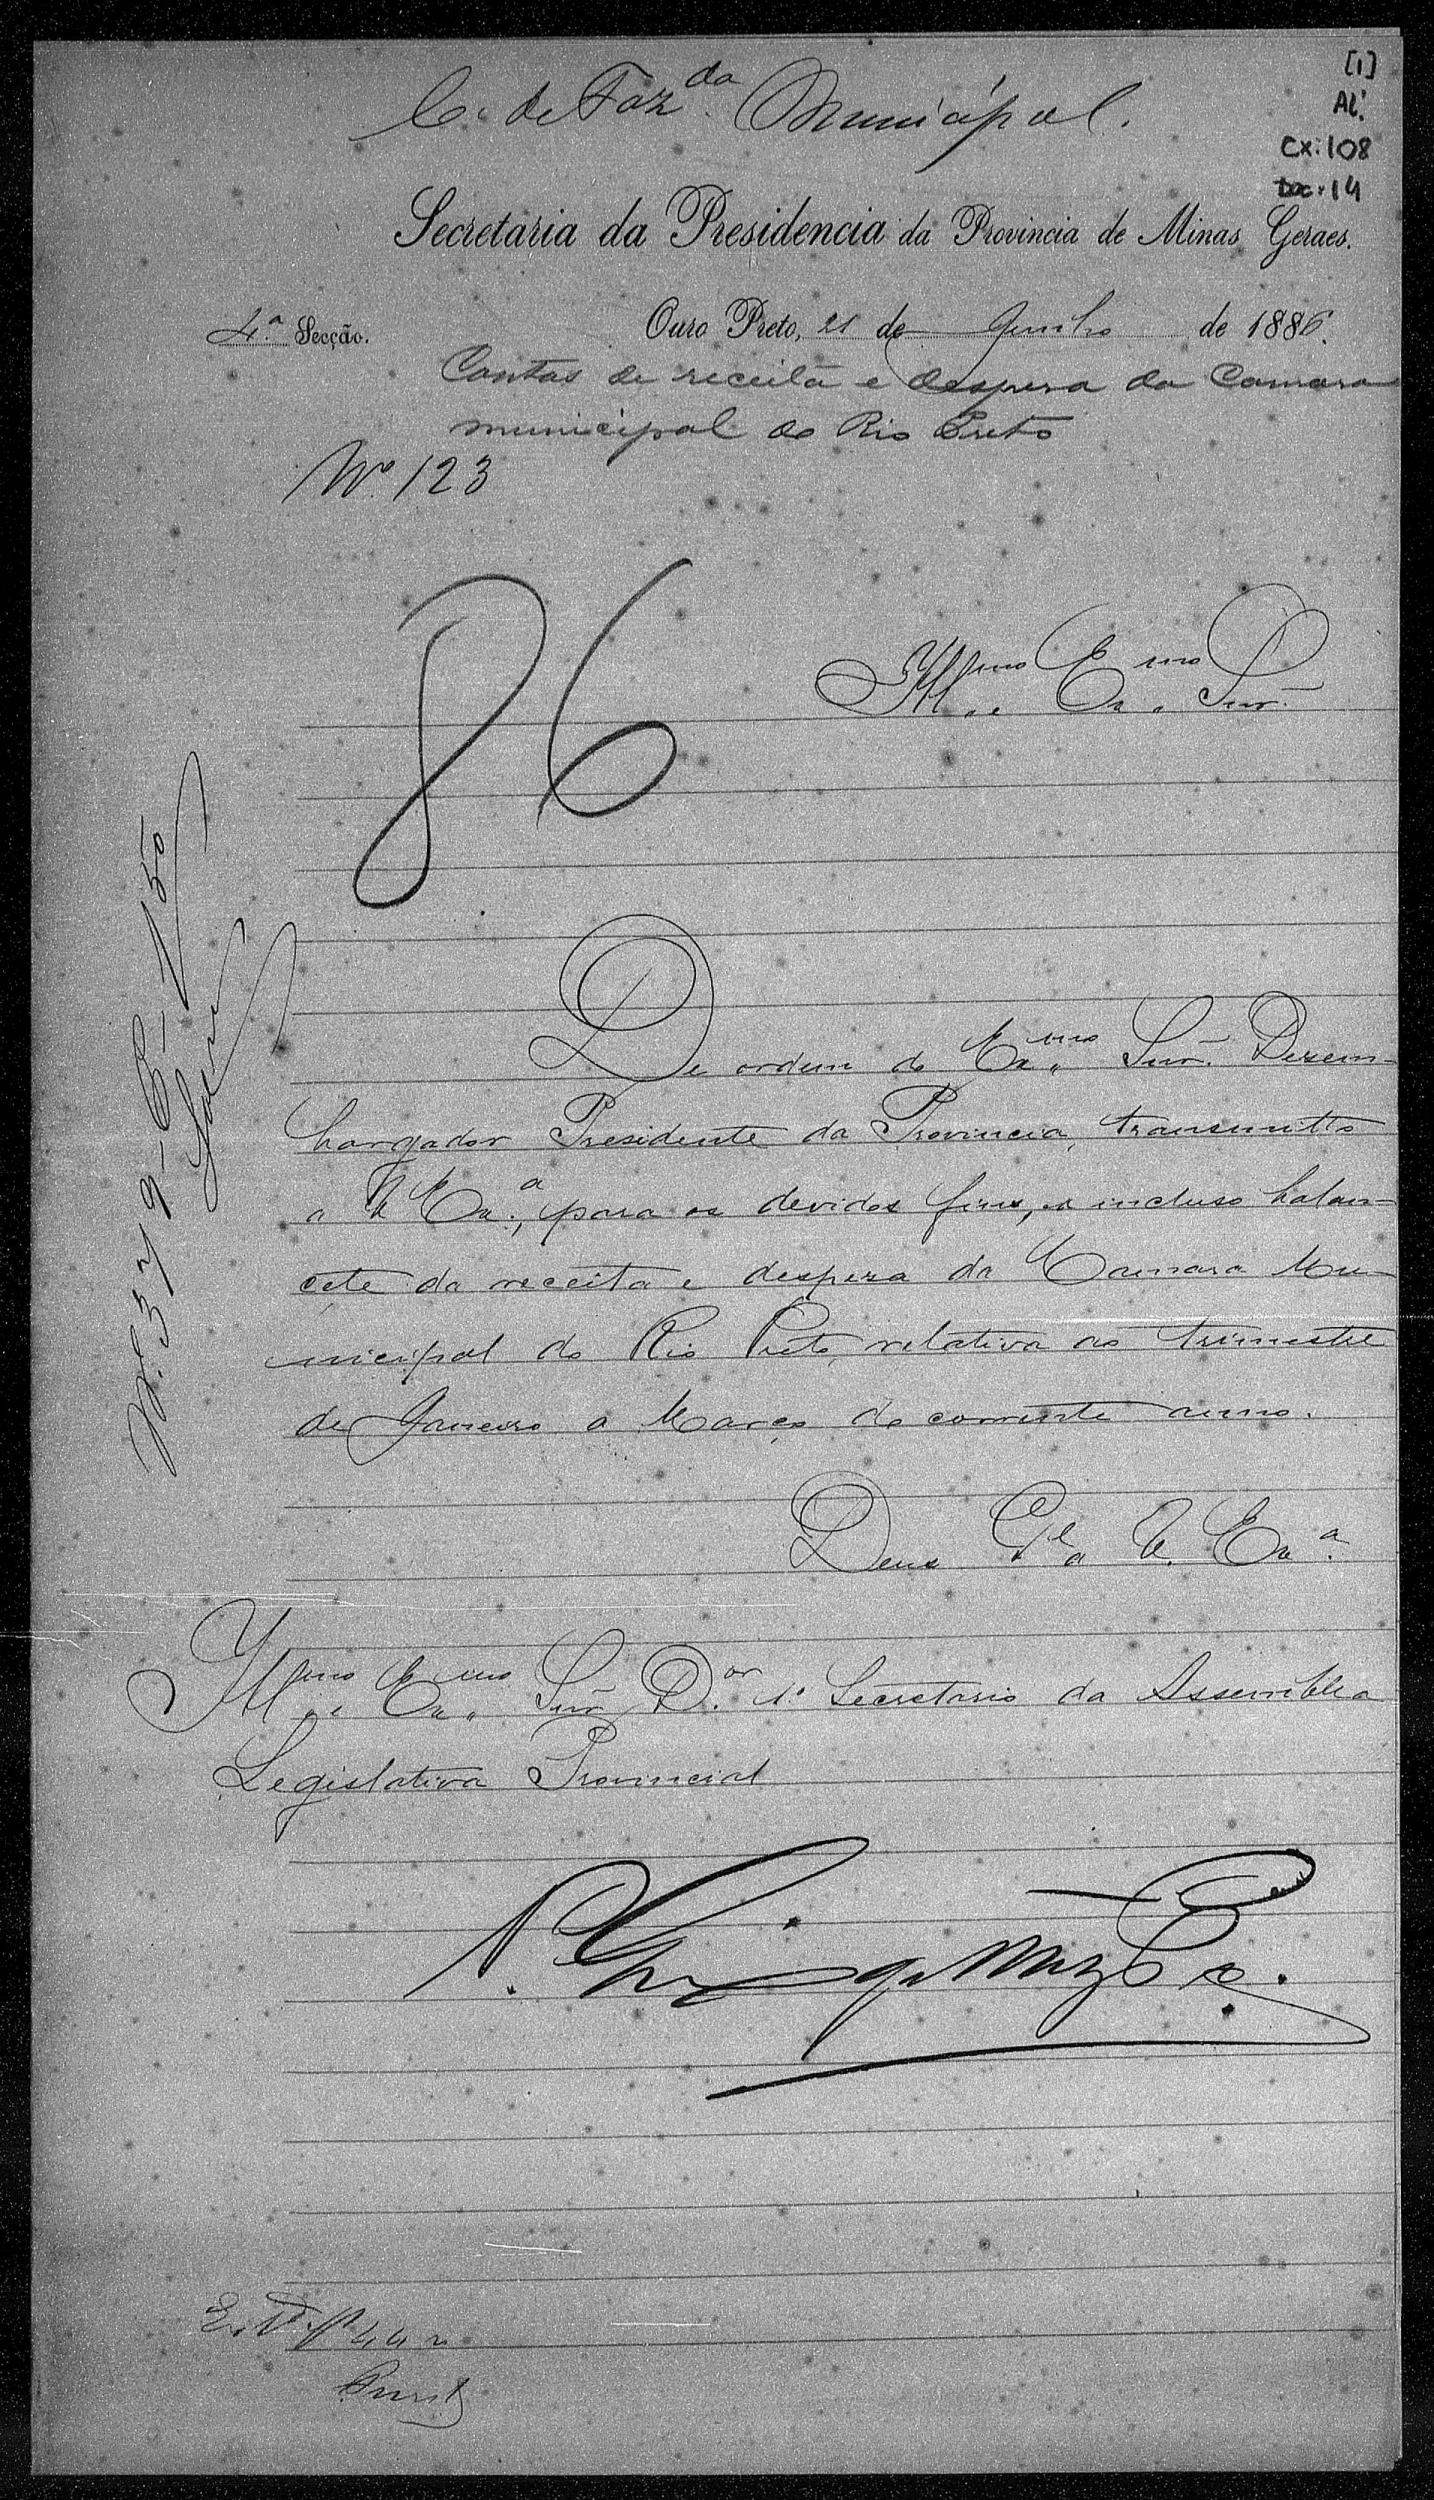 C. de Faz.da Municipal.
[1]
AL.
CX: 108
Doc. 14
Secretaria da Presidencia da Provincia de Minas Geraes.
4.a Secção. Ouro Preto, 21 de Junho de 1886.
Contas de receita e despesa da Camara
municipal do Rio Preto
Nº 123
86
Ill.mo e Ex.mo Snr.
De ordem do Ex.mo Snr. Dezem-
bargador Presidente da Provincia, transmitto
a V. Ex.a, para os devidos fins, o incluso balan-
cete da receita e despeza da Camara Mu-
nicipal do Rio Preto, relativa ao trimestre
de Janeiro a Março do corrente anno.
Deus G.e a V. Ex.a
Ill.mo e Ex.mo Snr. D.or 1º Secretario da Assembléa
Legislativa Provincial